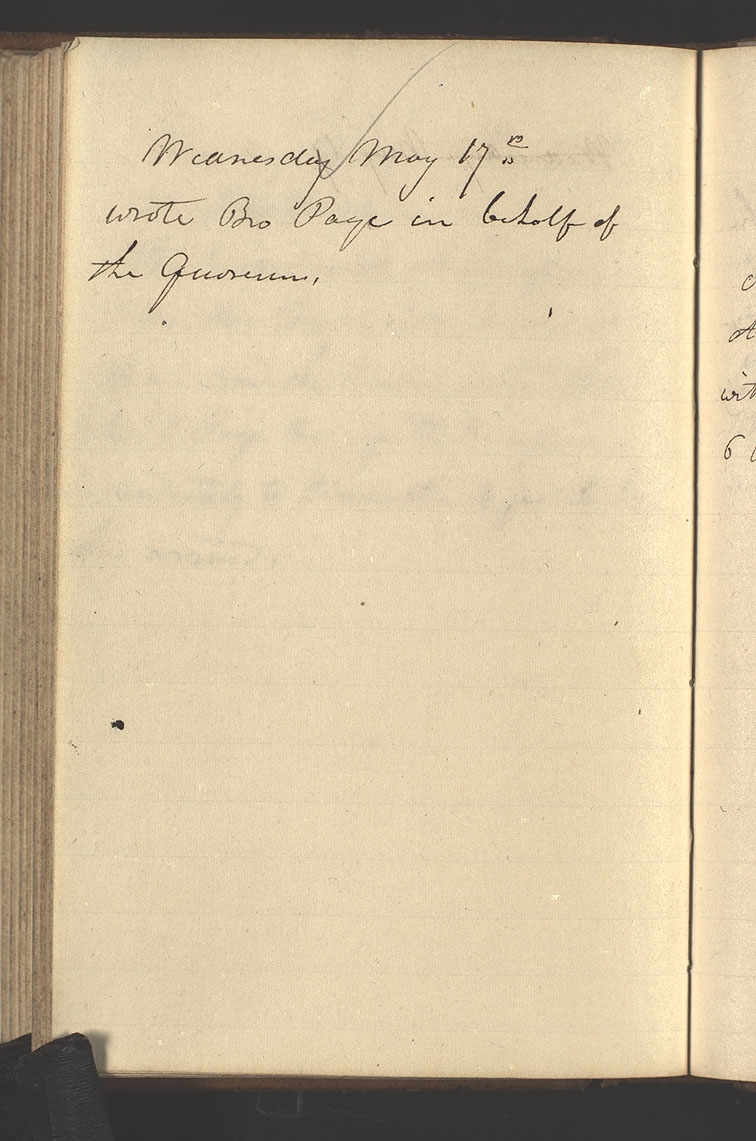 Wednesday May 17th
wrote Bro Page in behalf of
the Quorum.
wit
6